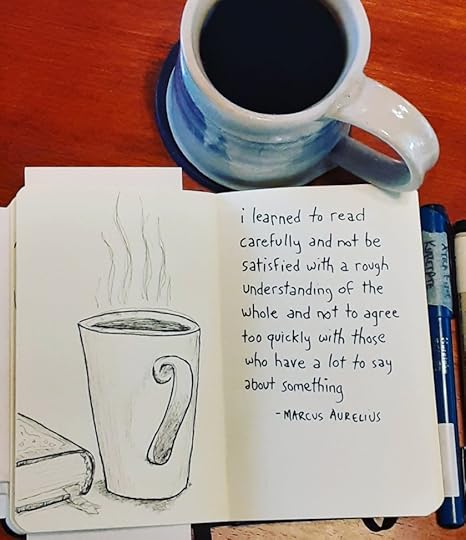 i learned to read
carefully and not be
satisfied with a rough
understanding of the
whole and not to agree
too quickly with those
who have a lot to say
about something
-MARCUS AURELIUS